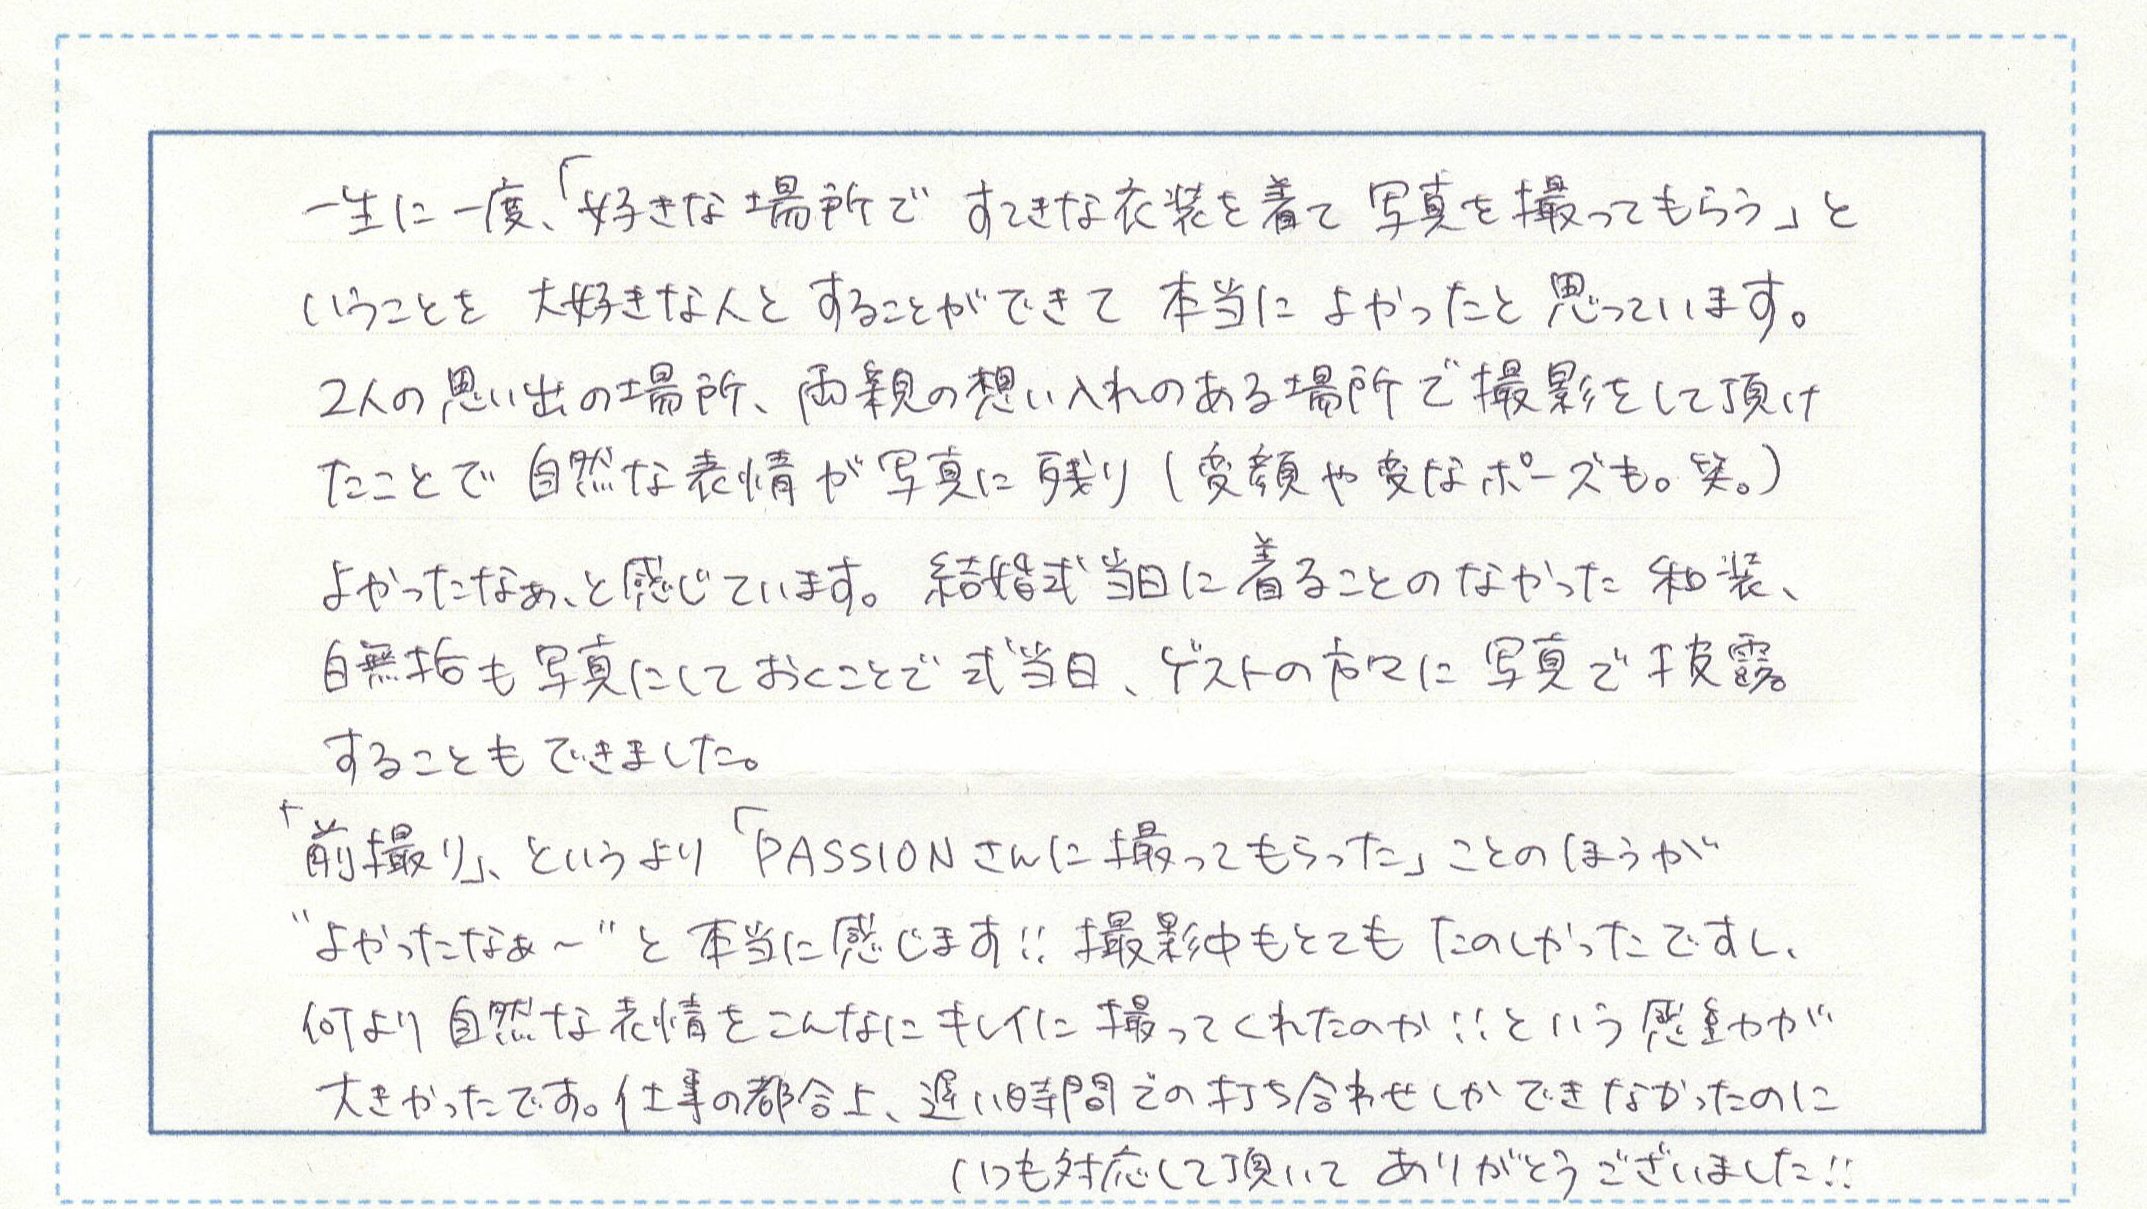 一生に一度、「好きな場所で すてきな衣装を着て 写真を撮ってもらう」と
いうことを 大好きな人と することができて 本当に よかったと 思っています。
2人の思い出の場所、両親の想い入れのある場所で撮影をして頂け
たことで 自然な表情が写真に残り（変顔や変なポーズも。笑。）
よかったなぁ、と感じています。結婚式当日に着ることのなかった 和装、
白無垢も写真にしておくことで式当日、ゲストの方々に写真で披露
することもできました。
「前撮り」、というより「PASSIONさんに撮ってもらった」ことのほうが
"よかったなぁ〜"と 本当に感じます!! 撮影中もとても たのしかったですし、
何より自然な表情をこんなにキレイに撮ってくれたのか!!という感動が
大きかったです。仕事の都合上、遅い時間での打ち合わせしかできなかったのに
いつも対応して頂いて ありがとうございました!!